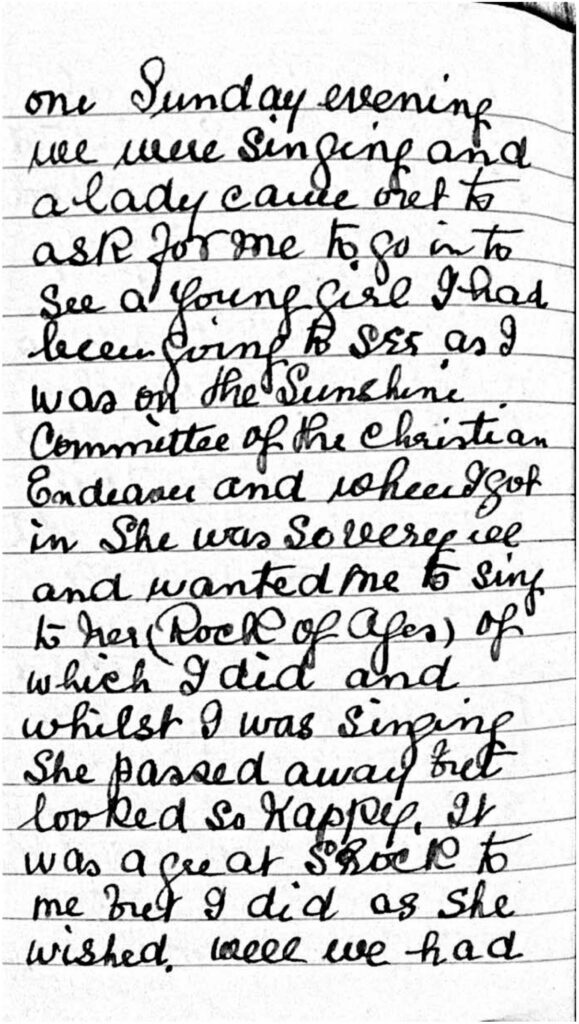 one Sunday evening
we were singing and
a lady came out to
ask for me to go in to
see a young girl I had
been going to see as I
was on the Sunshine
Committee of the Christian
Endeaver and when I got
in She was So very ill
and wanted me to sing
to her (Rock of Ages) of
which I did and
whilst I was singing
She passed away but
looked so happy. It
was a great shock to
me but I did as She
wished. well we had